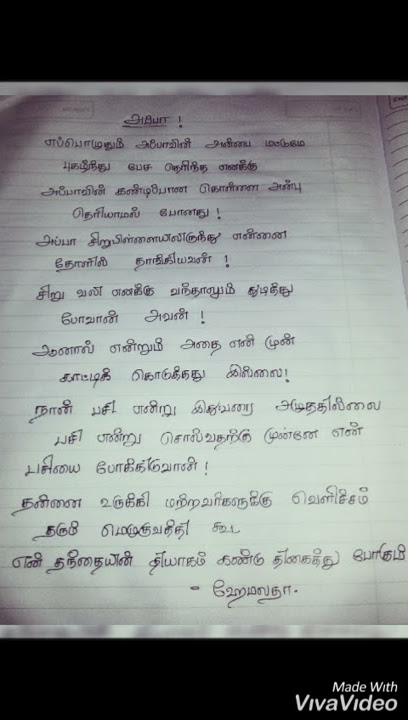 அப்பா !
எப்பொழுதும் அம்மாவின் அன்பை மட்டுமே
புகழ்ந்து பேச தெரிந்த எனக்கு
அப்பாவின் கண்டிப்பான கொள்ளை அன்பு
தெரியாமல் போனது !
அப்பா சிறுபிள்ளையிலிருந்து என்னை
தோளில் தாங்கியவன் !
சிறு வலி எனக்கு வந்தாலும் துடித்து
போவான் அவன் !
ஆனால் என்றும் அதை என் முன்
காட்டிக் கொடுத்தது இல்லை!
நான் பசி என்று இதுவரை அழுததில்லை
பசி என்று சொல்வதற்கு முன்னே என்
பசியை போக்கிடுவான் !
தன்னை உருக்கி மற்றவர்களுக்கு வெளிச்சம்
தரும் மெழுகுவத்தி கூட
என் தந்தையின் தியாகம் கண்டு திகைத்து போகும்
- ஹேமலதா.
Made With
VivaVideo